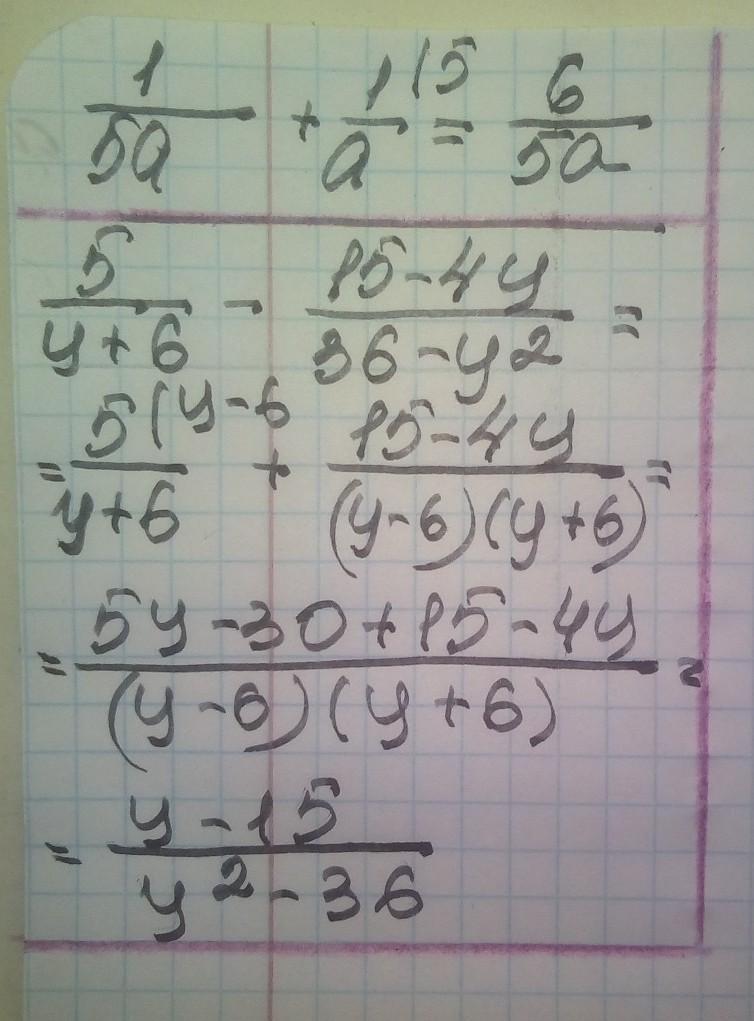 1/5a + 1(5/a = 6/5a
5/y+6 - 15-4y/36-y2 =
= 5(y-6/y+6 + 15-4y/(y-6)(y+6) =
= 5y-30+15-4y/(y-6)(y+6) =
= y-15/y²-36